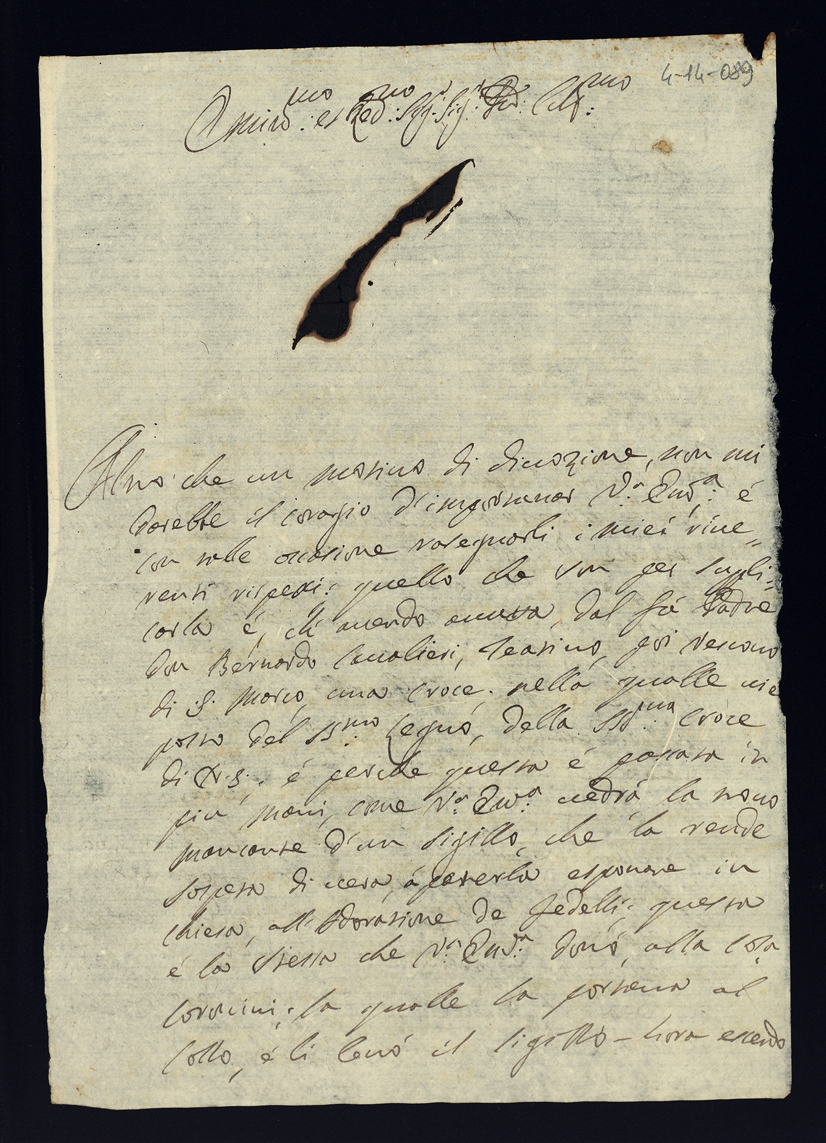 4-14-089
Emin:mo et Red:mo Sig:r Sig:r Pron: Col:mo
Altro che un motivo di divozione, non mi
darebbe il coragio d'importunar V:a Em:a é
con tolle occasione rasegnarli i miei rive„
renti rispeti: quello che son per supli„
carla é, ch'avendo avuta, dal fú Padre
Don Bernardo Cavalieri, Teatino, poi Vescovo
di S. Marco, una Croce. nella qualle vi é
posto del SS:mo Legno, della SS:ma Croce
di N. S. é perche questa é passata in
piu mani, come V:a Em:a vedrá la trovo
mancante d'un sigillo, che la rende
sospesa di vera, á poterla esponare in
chiesa, all'Adorasione de fedelli; questa
é la stessa che V:a Em:a donó, alla Casa
Coronini; la qualle la portava al
collo, é li levó il sigillo – hora essendo